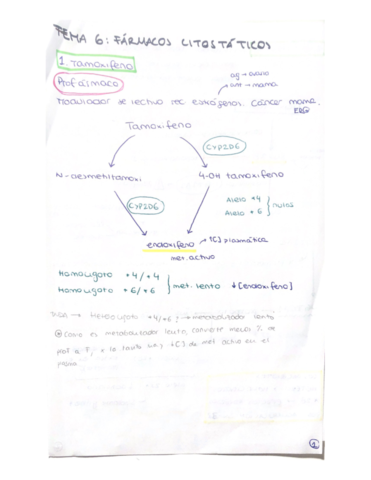 TEMA 6: FÁRMACOS CITOSTÁTICOS
1. Tamoxifeno
Profármaco
ag → ovario
ant → mama
Modulador selectivo rec. estrógenos. Cáncer mama.
Tamoxifeno
CYP2D6
N-desmetiltamoxi
4-OH tamoxifeno
CYP2D6
Alelo *4
Alelo *6
nulos
endoxifeno → ↑[] plasmática
met. activo
Homocigoto *4/*4
Homocigoto *6/*6
met. lento ↓[endoxifeno]
Heterocigoto *4/*6 → metabolizador lento
como es metabolizador lento, convierte menos
prof a F, x lo tanto hay ↓[] de met activo en el